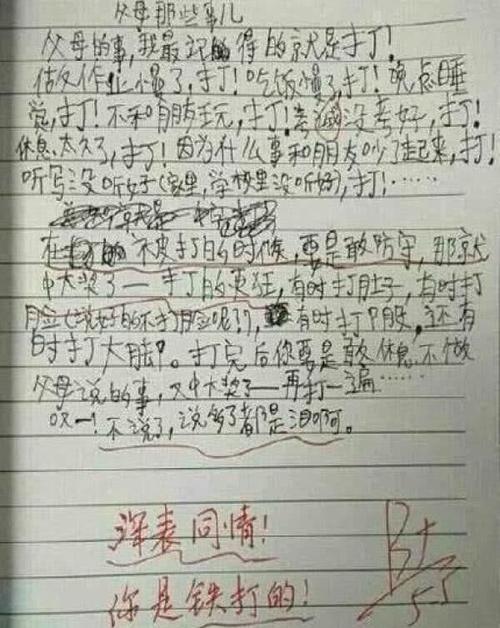 父母那些事儿
父母的事，我最记得的就是打！
做作业慢了，打！吃饭慢了，打！晚点睡
觉，打！不和朋友玩，打！考试没考好，打！
休息太久了，打！因为什么事和朋友吵了起来，打！
听写没听好（家里，学校里没听好），打！……
在被打的时候，要是敢防守，那就
中大奖了——打的更狂，有时打肚子，有时打
脸（说好的不打脸呢？），有时打脚，还有
时打大腿。打完后你要是敢休息不做
父母说的事，又中大奖了——再打一遍……
唉——！不说了，说多了都是泪啊。
深表同情！
你是铁打的！
B+